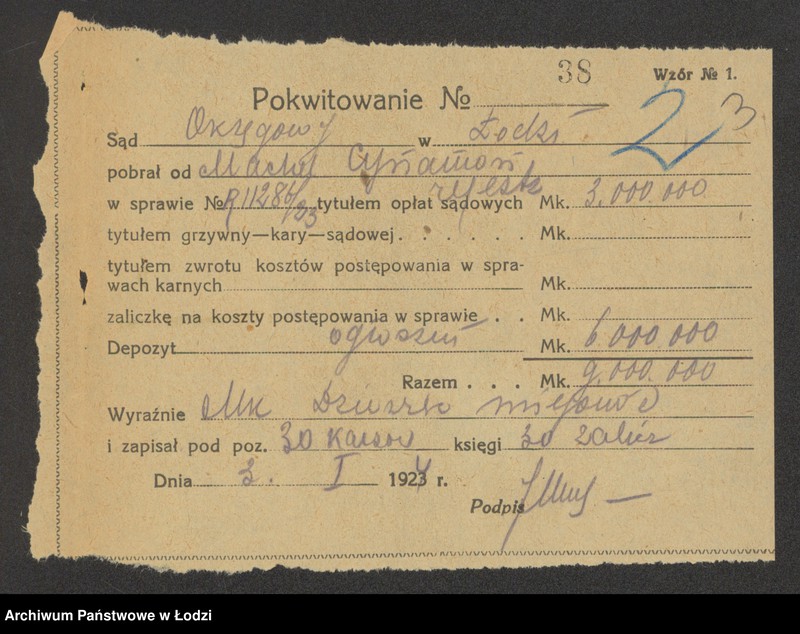 38
Wzór № 1.
Pokwitowanie №
23
Sąd Okręgowy w Łodzi
pobrał od Machel Cynamon
rejestr
w sprawie № R11286/23 tytułem opłat sądowych Mk. 3.000.000
tytułem grzywny—kary—sądowej . . . . . . Mk.
tytułem zwrotu kosztów postępowania w spra-
wach karnych Mk.
zaliczkę na koszty postępowania w sprawie . . Mk.
Depozyt ogłoszeń Mk. 6.000.000
Razem . . . Mk. 9.000.000
Wyraźnie Mk Dziewięć miljonów
i zapisał pod poz. 30 kasow księgi 30 zalicz
Dnia 3. I 1924 r.
Podpis
Archiwum Państwowe w Łodzi